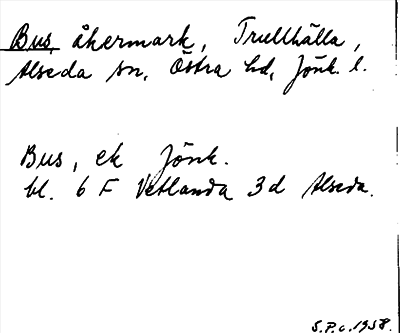 Bus, åkermark, Trullhälla,
Alseda sn, Östra hd, Jönk. l.
Bus, ek Jönk.
bl. 6 F Vetlanda 3d Alseda.
S.P.c. 1958.